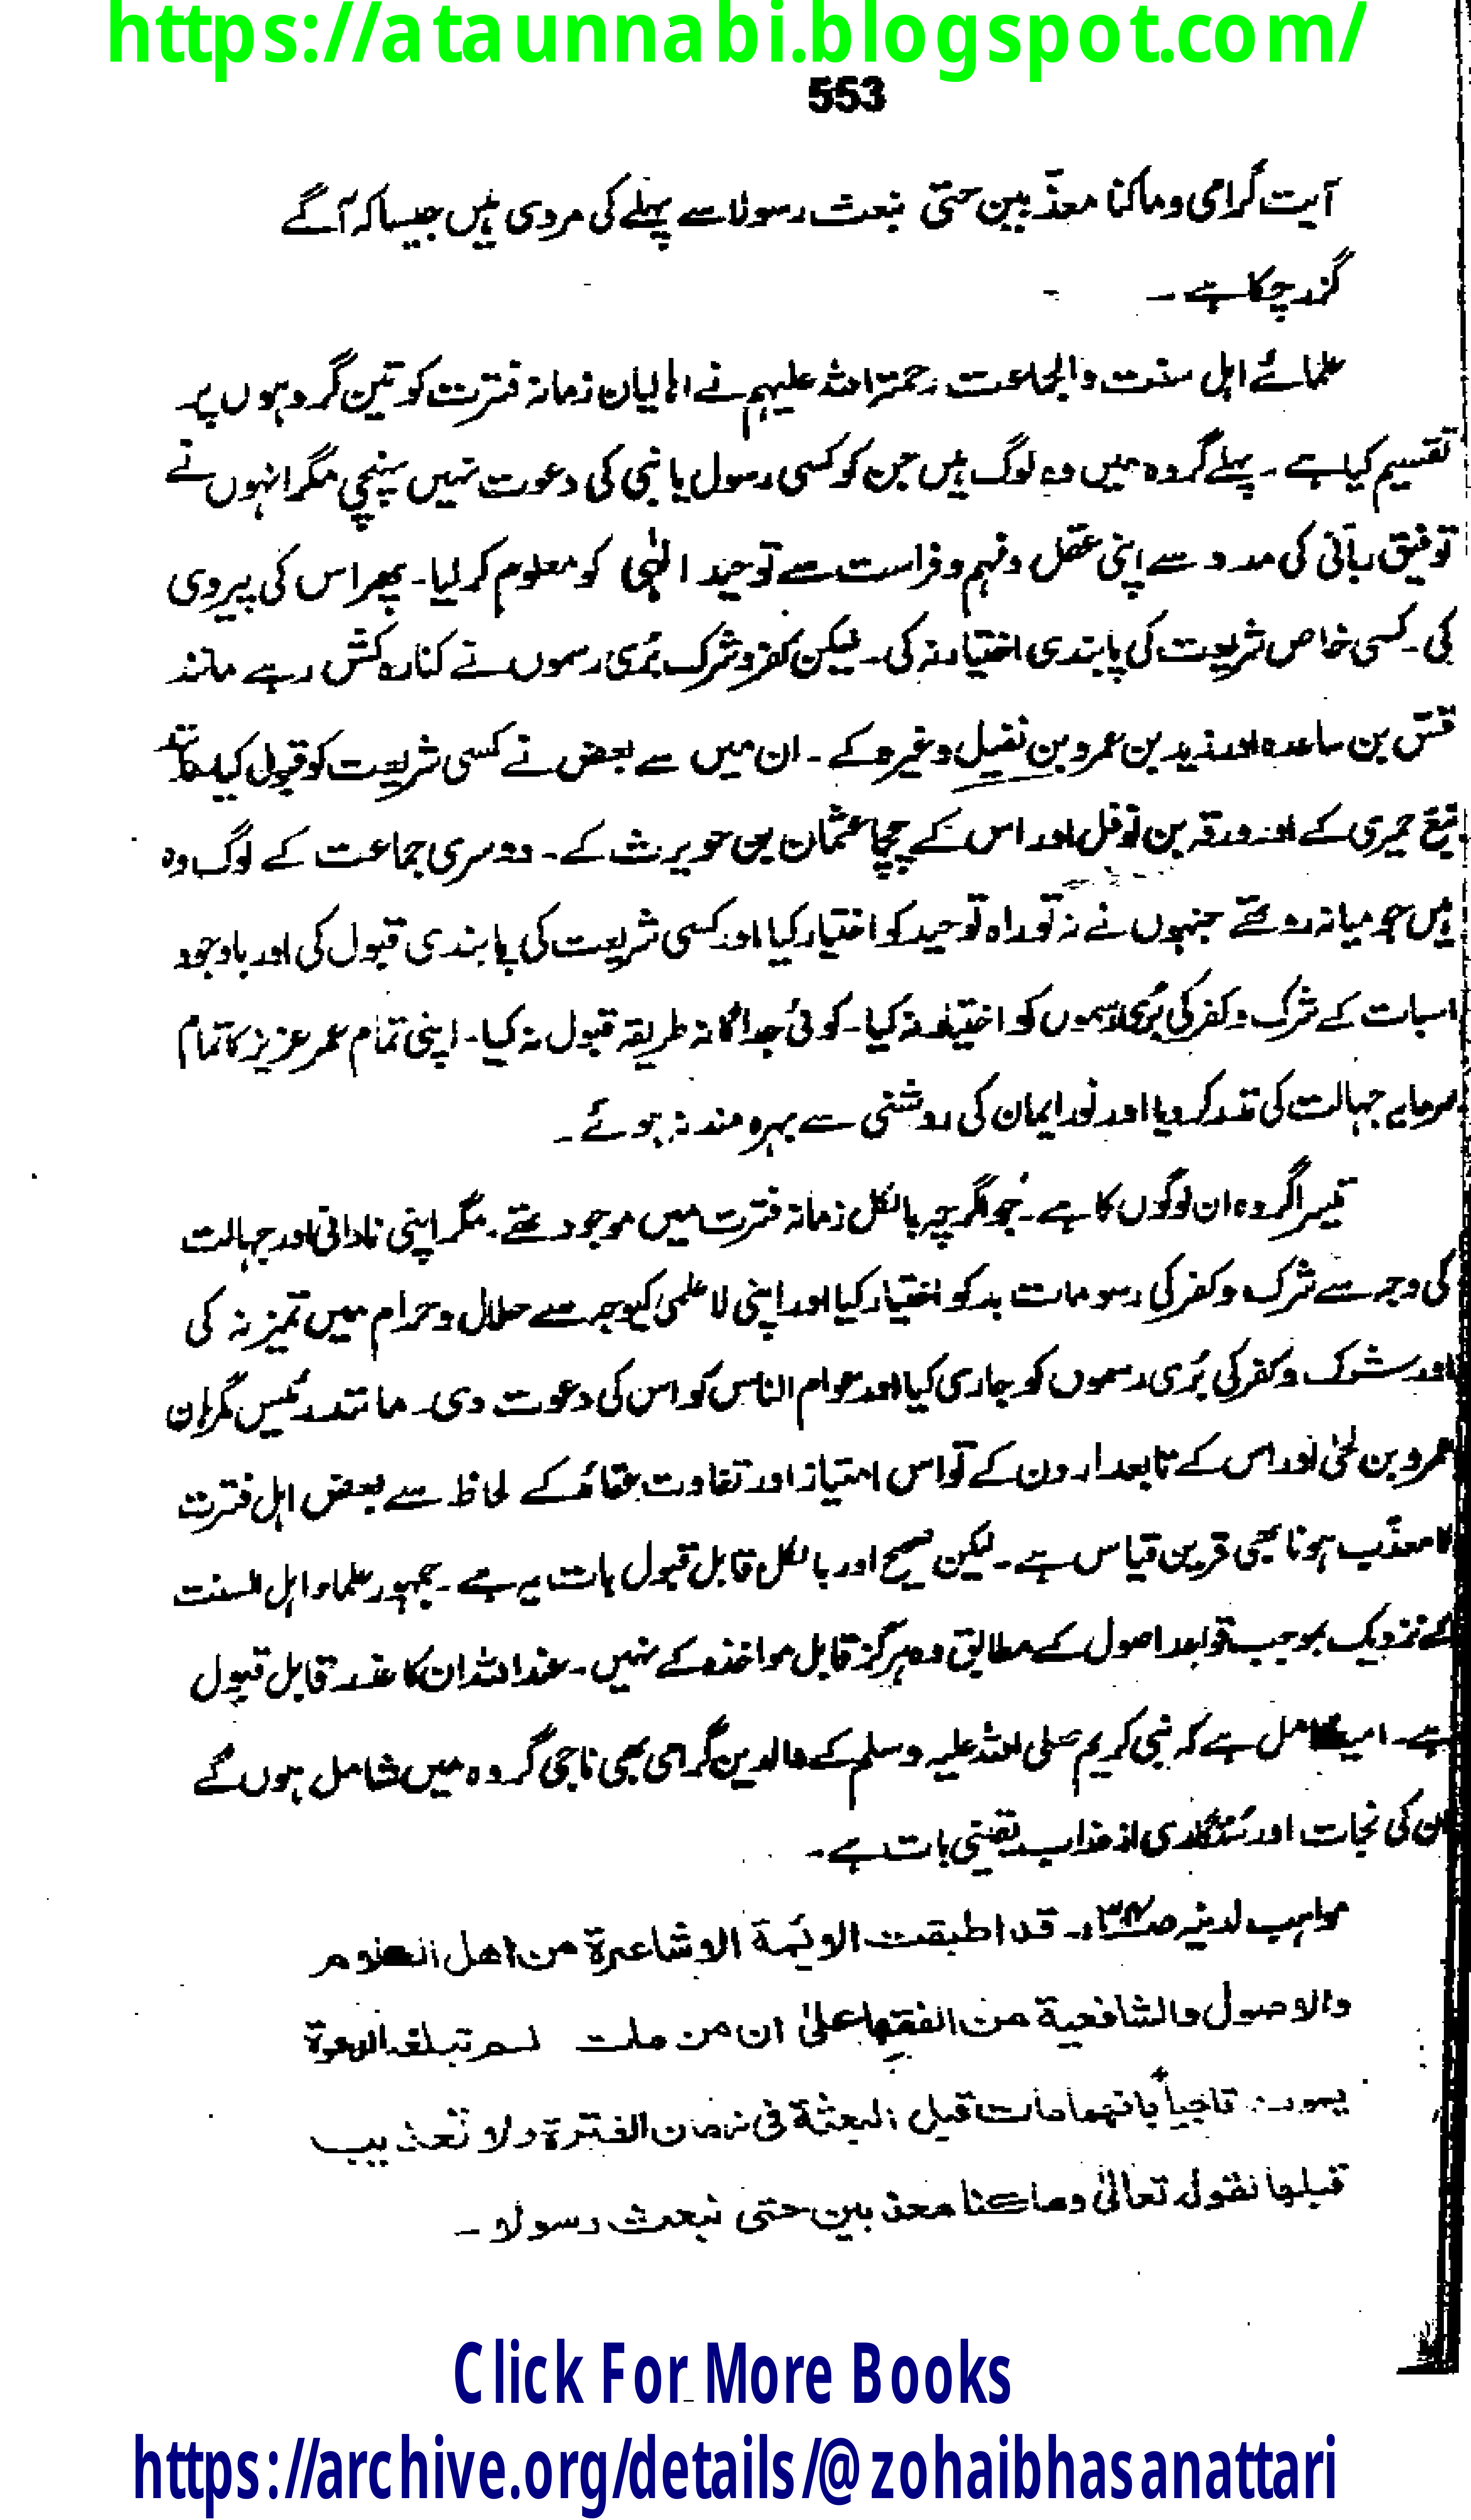 https://ataunnabi.blogspot.com/
553
آیت گرامی وماکنا معذبین حتیٰ نبعث رسولا سے پہلے کی مروی ہیں جیسا کہ آگے
گزر چکا ہے ۔
علمائے اہل سنت والجماعت رحمۃ اللہ علیہم نے اہالیان زمانہ فترت کو تین گروہوں پر
تقسیم کیا ہے ۔ پہلے گروہ میں وہ لوگ ہیں جن کو کسی رسول یا نبی کی دعوت نہیں پہنچی مگر انہوں نے
توفیق ربانی کی مدد سے اپنی عقل و فہم و فراست سے توحید الٰہی کو معلوم کر لیا ۔ پھر اس کی پیروی
کی ۔ کسی خاص شریعت کی پابندی اختیار نہ کی ۔ لیکن کفر و شرک بُری رسموں نے کنارہ کش رہے مانند
قس بن ساعدہ اور زید بن عمرو بن نفیل وغیرہ کے ۔ ان میں سے بعض نے کسی شریعت کو قبول کیا مانند
تبع حمیری کے اور ورقہ بن نوفل اور اس کے چچا عثمان بن حویرث کے ۔ دوسری جماعت کے لوگ وہ
ہیں جو میانہ رو تھے جنہوں نے نہ تو راہ توحید کو اختیار کیا اور کسی شریعت کی پابندی قبول کی اور باوجود
اسبات کے شرک و کفر کی بُری رسموں کو اختیار نہ کیا ۔ کوئی جداگانہ طریقہ قبول نہ کیا ۔ اپنی تمام عمر عزیز کا تمام
سرمایہ جہالت کی نذر کر دیا اور نور ایمان کی روشنی سے بہرہ مند نہ ہوئے ۔
تیسرا گروہ ان لوگوں کا ہے ۔ جو اگرچہ بالکل زمانہ فترت میں موجود تھے ۔ مگر اپنی نادانی اور جہالت
کی وجہ سے شرک و کفر کی رسومات بد کو اختیار کیا اور اپنی لاعلمی کیوجہ سے حلال و حرام میں تمیز نہ کی
اور شرک و کفر کی بُری رسموں کو جاری کیا اور عوام الناس کو اس کی دعوت دی ۔ مانند رئیس گمراہان
عمرو بن لحی اور اس کے تابعداروں کے تو اس امتیاز اور تفاوت عقائد کے لحاظ سے بعض اہل فترت
کا معذب ہونا بھی قرین قیاس ہے ۔ لیکن صحیح اور بالکل قابل قبول بات یہ ہے ۔ جمہور علماء اہل السنت
کے نزدیک بموجب قواعد اصول کے مطابق وہ ہرگز قابل مواخذہ کے نہیں ۔ عند اللہ ان کا عذر قابل قبول
ہے ۔ امید کامل ہے کہ نبی کریم صلی اللہ علیہ وسلم کے والدین گرامی بھی ناجی گروہ میں شامل ہوں گے
ان کی نجات اور رستگاری از عذاب یقینی بات ہے ۔
مواہب لدنیہ ۔ قد اطبقت الائیمۃ الاشاعرۃ من اھل العلوم
والاصول والشافعیۃ من الفقھا علیٰ ان من مات لم تبلغہ الدعوۃ
یموت ناجیاً بانھما ماتا قبل البعثۃ فی زمان الفترۃ ولا تعذیب
قبلھا لقولہ تعالیٰ وماکنا معذبین حتی نبعث رسولا ۔
Click For More Books
https://archive.org/details/@zohaibhasanattari